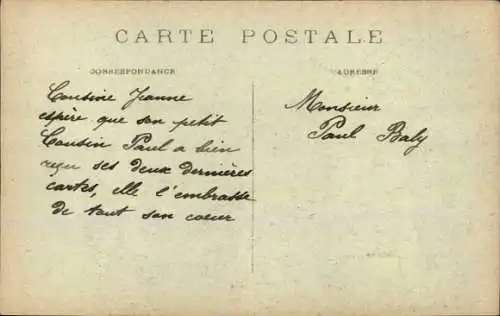 CARTE POSTALE
CORRESPONDANCE
ADRESSE
Cousine Jeanne
espère que son petit
Cousin Paul a bien
reçu ses deux dernières
cartes, elle l'embrasse
de tout son coeur
Monsieur
Paul Baly